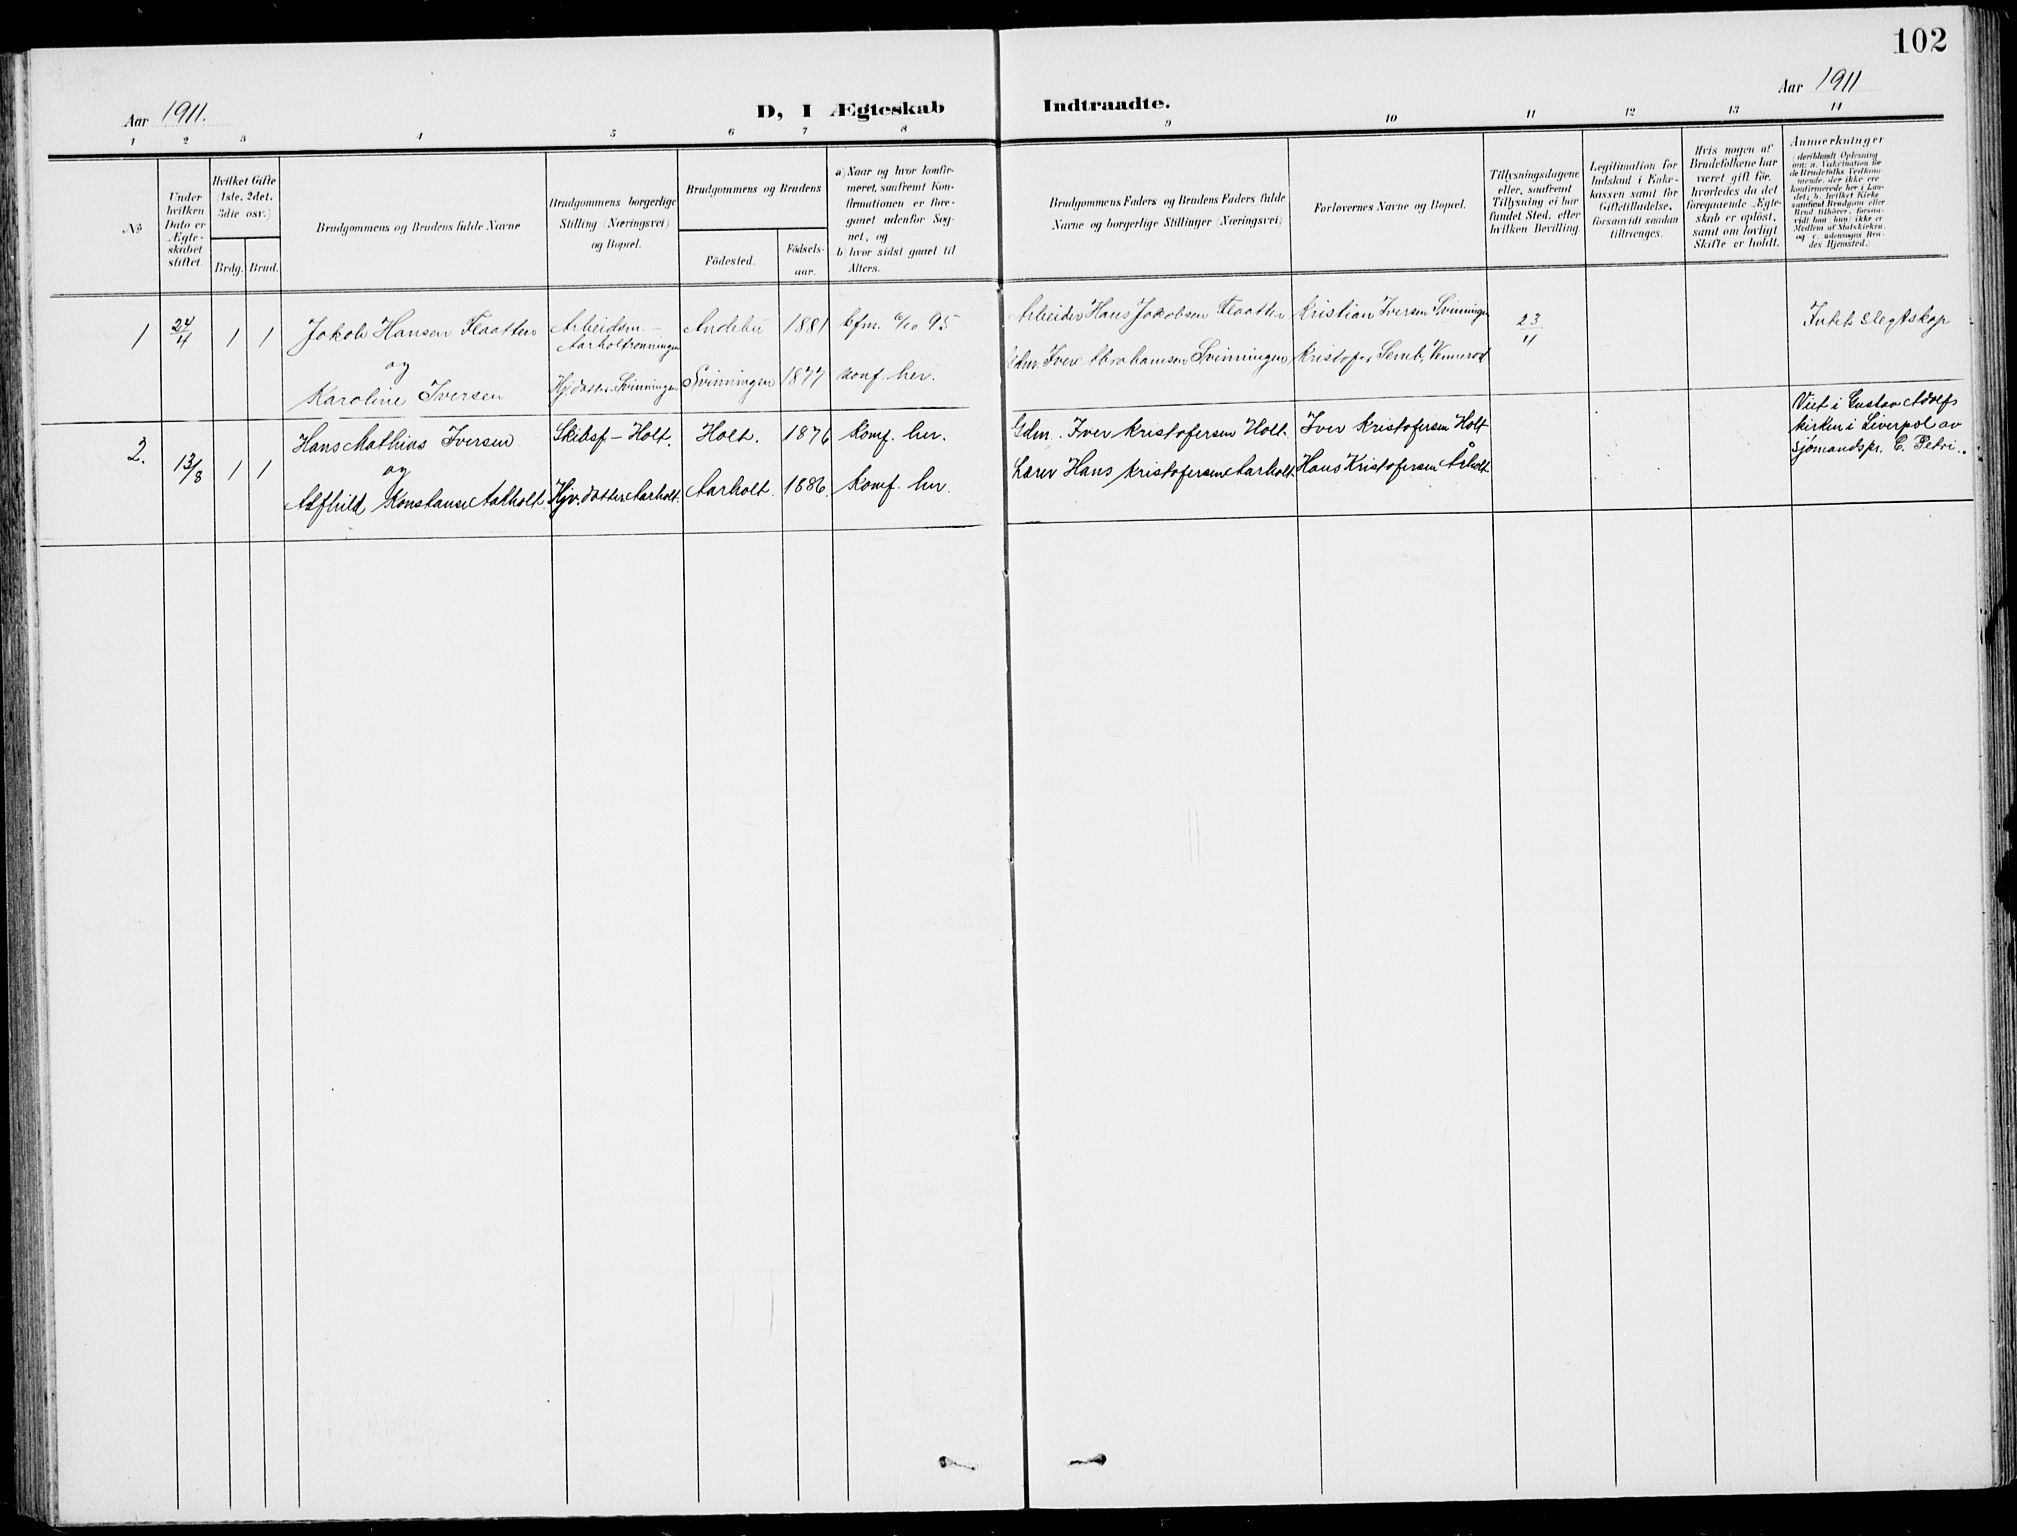 102
Aar 1911.
D, I Ægteskab
Indtraadte.
Aar 1911
1 2 3 4 5 6 7 8 9 10 11 12 13 14
No
Under hvilken Dato er Ægteskabet stiftet.
Hvilket Gifte (1ste, 2det, 3die osv.)
Brdg. Brud.
Brudgommens og Brudens fulde Navne
Brudgommens borgerlige Stilling (Næringsvei) og Bopæl.
Brudgommens og Brudens
Födested.
Födsels-aar.
a) Naar og hvor konfir-
meret, saafremt Kon-
firmationen er fore-
gaaet udenfor Sog-
net, og
b) hvor sidst gaaet til
Alters.
Brudgommens Faders og Brudens Faders fulde
Navne og borgerlige Stillinger (Næringsvei)
Forlovernes Navne og Bopæl.
Tillysningsdagene
eller, saafremt
Tillysning ei har
fundet Sted, efter
hvilken Bevilling.
Legitimation for
Indskud i Enke-
kassen samt for
Giftetilladelse,
forsaavidt saadan
tiltrænges.
Hvis nogen af
Brudefolkene har
været gift för,
hvorledes da det
foregaaende Ægte-
skab er oplöst,
samt om lovligt
Skifte er holdt.
Anmærkninger
(deriblandt Oplysning
om: a. Vakcination for
de Brudefolks Vedkom-
mende, der ikke ere
konfirmerede her i Lan-
det; b. hvilket Kirke-
samfund Brudgom eller
Brud tilhörer, forsaa-
vidt han (hun) ikke er
Medlem af Statskirken,
og c. udensogns Bru-
des Hjemsted.)
1 24/4 1 1 Jakob Hansen Flaatten Arbeidsm. – Aarholtrønningen Andebu 1881 95 Arbeider Hans Jakobsen Flaatten Kristian Iversen Svinningen 23/4 Intet Slegtskap
og
Karoline Iversen Hj. datter Svinningen Svinningen 1877 konf. her. Gdm. Iver Abrahamsen Svinningen Kristofer Semb, Vennerød
2. 13/8 1 1 Hans Mathias Iversen Skibsf – Holt. Holt. 1876 Konf. her. Gdm. Iver Kristofersen Holt. Iver Kristofersen Holt
og
Alfhild Konstanse Aarholt. Hjv. datter Aarholt. Aarholt. 1886. Konf. her. Lærer Hans Kristofersen Aarholt. Hans Kristofersen Årholt.
Viet i Gustav Adolfs
kirken i Liverpol av
sjømandspr. C. Petri.